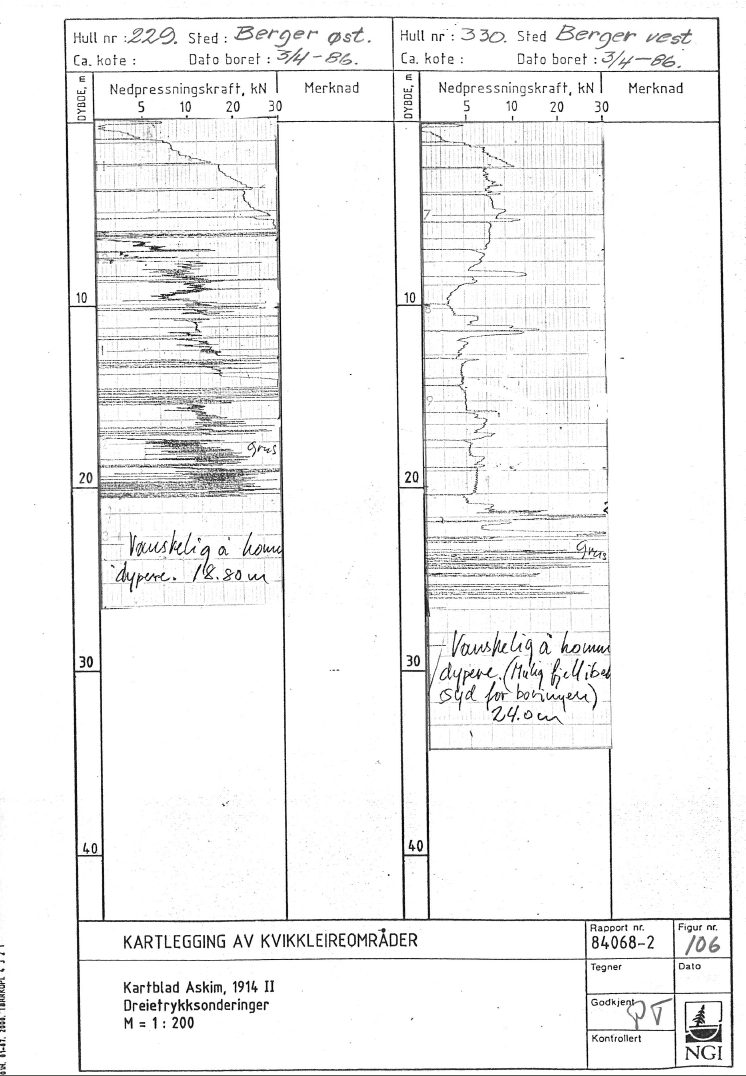 Hull nr : 229. Sted : Berger øst.
Ca. kote : Dato boret : 3/4-86.
DYBDE, m
Nedpressningskraft, kN Merknad
5 10 20 30
10
Grus
20
Vanskelig å komm
dypere. 18.80m
30
40
Hull nr : 330. Sted Berger vest
Ca. kote : Dato boret : 3/4-86.
DYBDE, m
Nedpressningskraft, kN Merknad
5 10 20 30
7
10
20
Grus
Vanskelig å komm
30
dypere. (Mulig fjell i
syd for boringen)
24.0m
40
KARTLEGGING AV KVIKKLEIREOMRÅDER
Kartblad Askim, 1914 II
Dreietrykksonderinger
M = 1 : 200
Rapport nr.
84068-2
Figur nr.
106
Tegner
Dato
Godkjent
Kontrollert
NGI